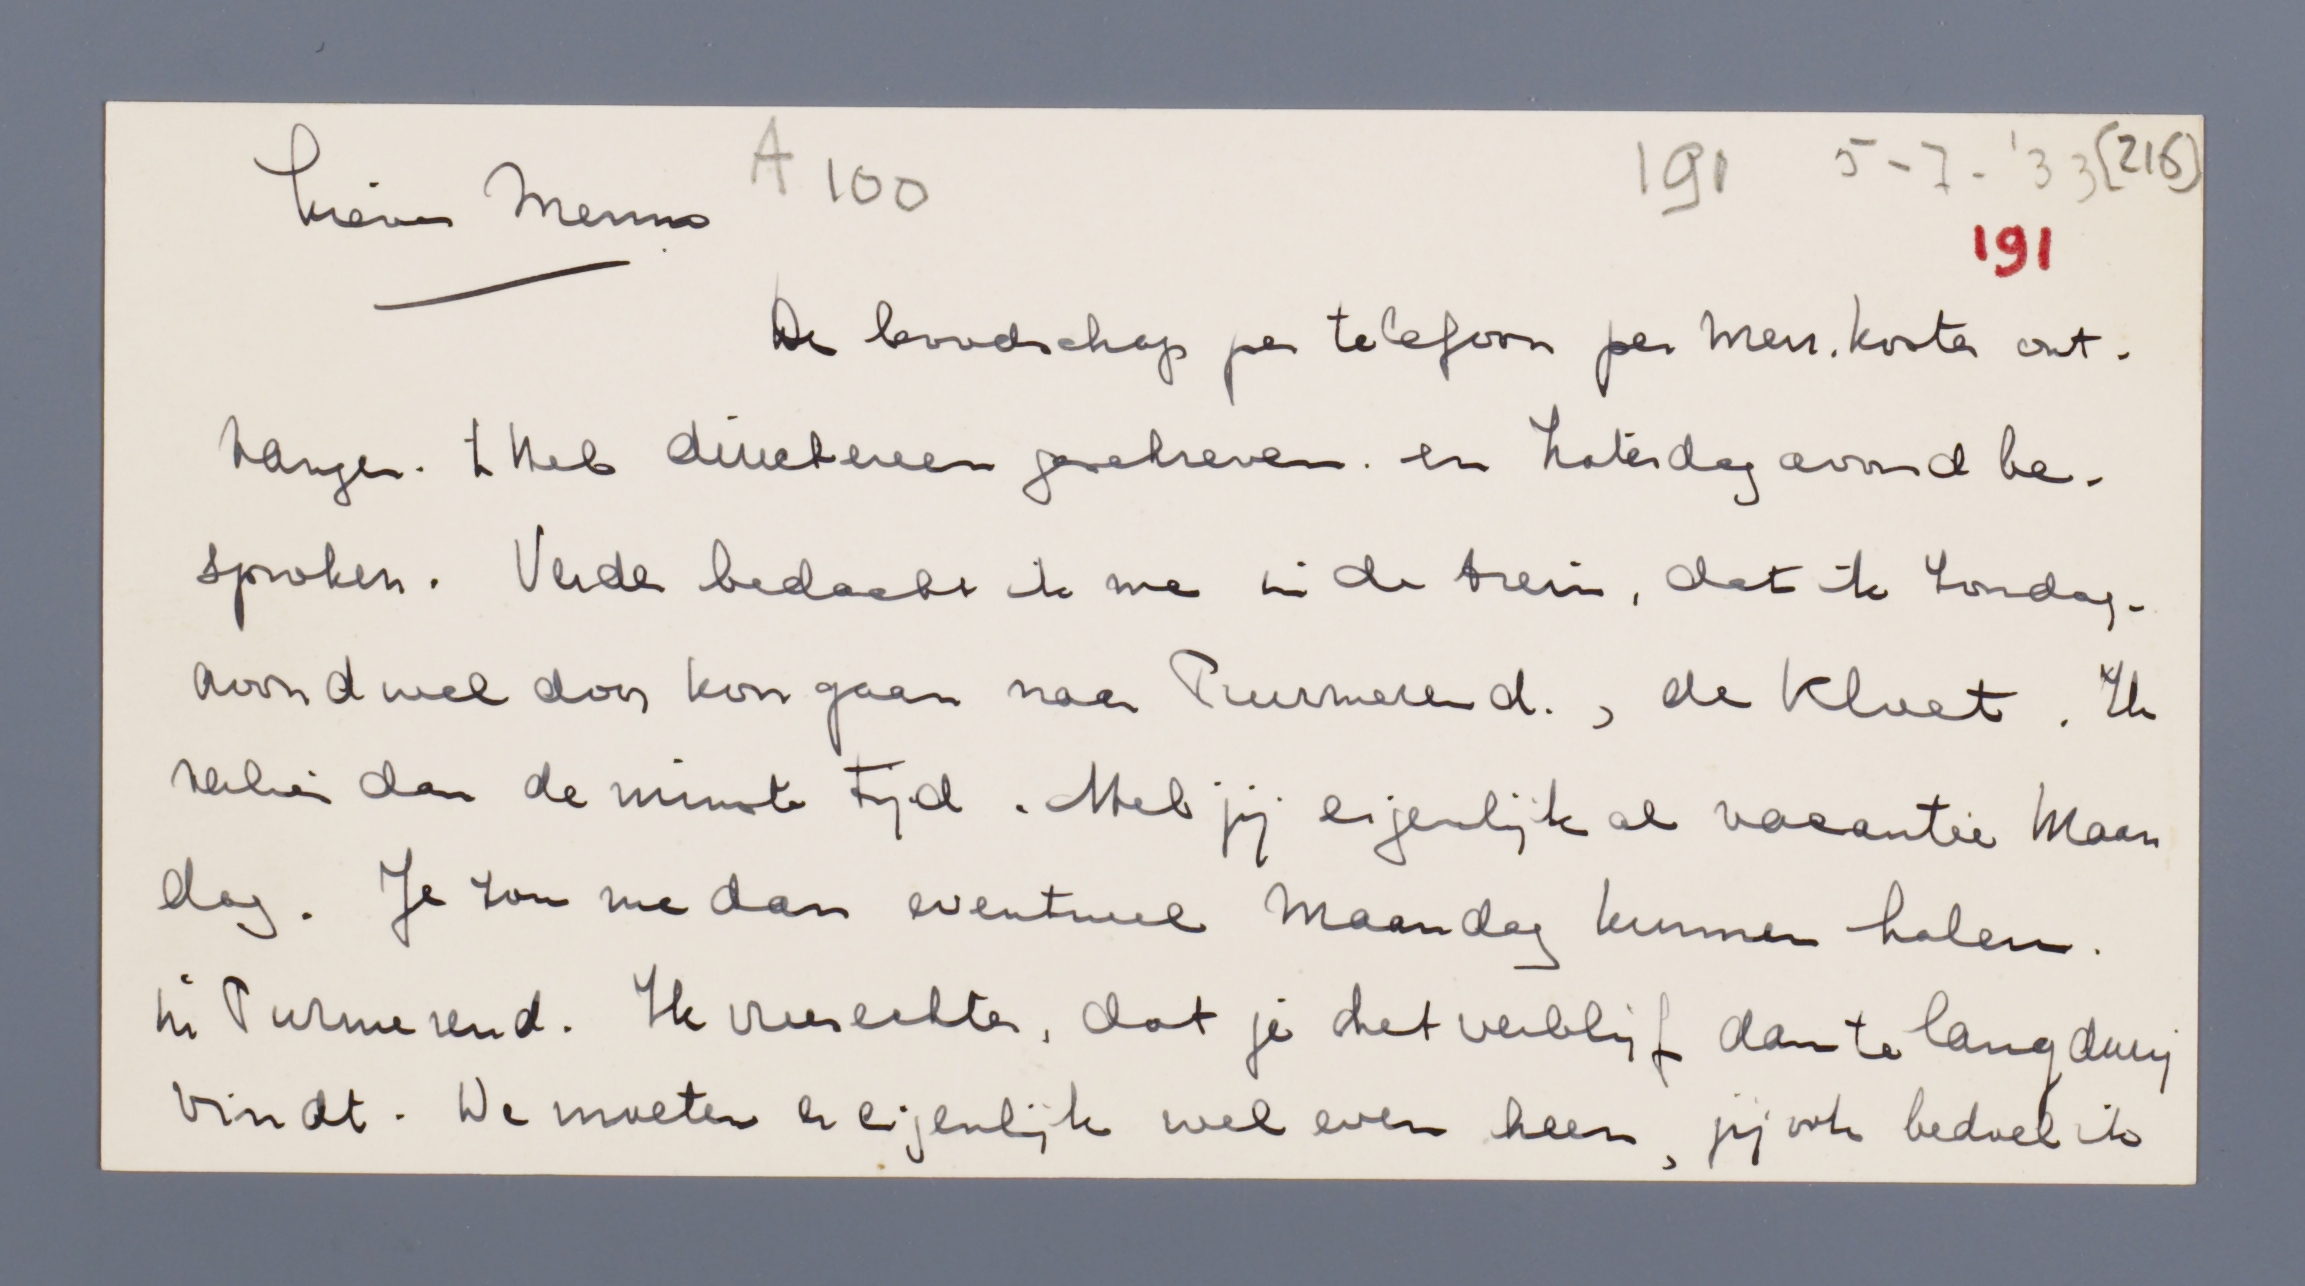 Lieve Menno A 100 191 5-7-'33 (216)
191
De boodschap per telefoon per Mevr. Koster ont-
vangen. 't Heb directeen geschreven. en Zaterdagavond be-
sproken. Verder bedacht ik me in de trein, dat ik Zondag-
avond wel door kon gaan naar Purmerend., de Kloet. Ik
verlies dan de minste tijd. Heb jij eigenlijk al vacantie Maan
dag. Je zou me dan eventueel Maandag kunnen halen.
in Purmerend. Ik vrees echter, dat je het verblijf dan te langdurig
vindt. We moeten er eigenlijk wel even heen, jij ook bedoel ik